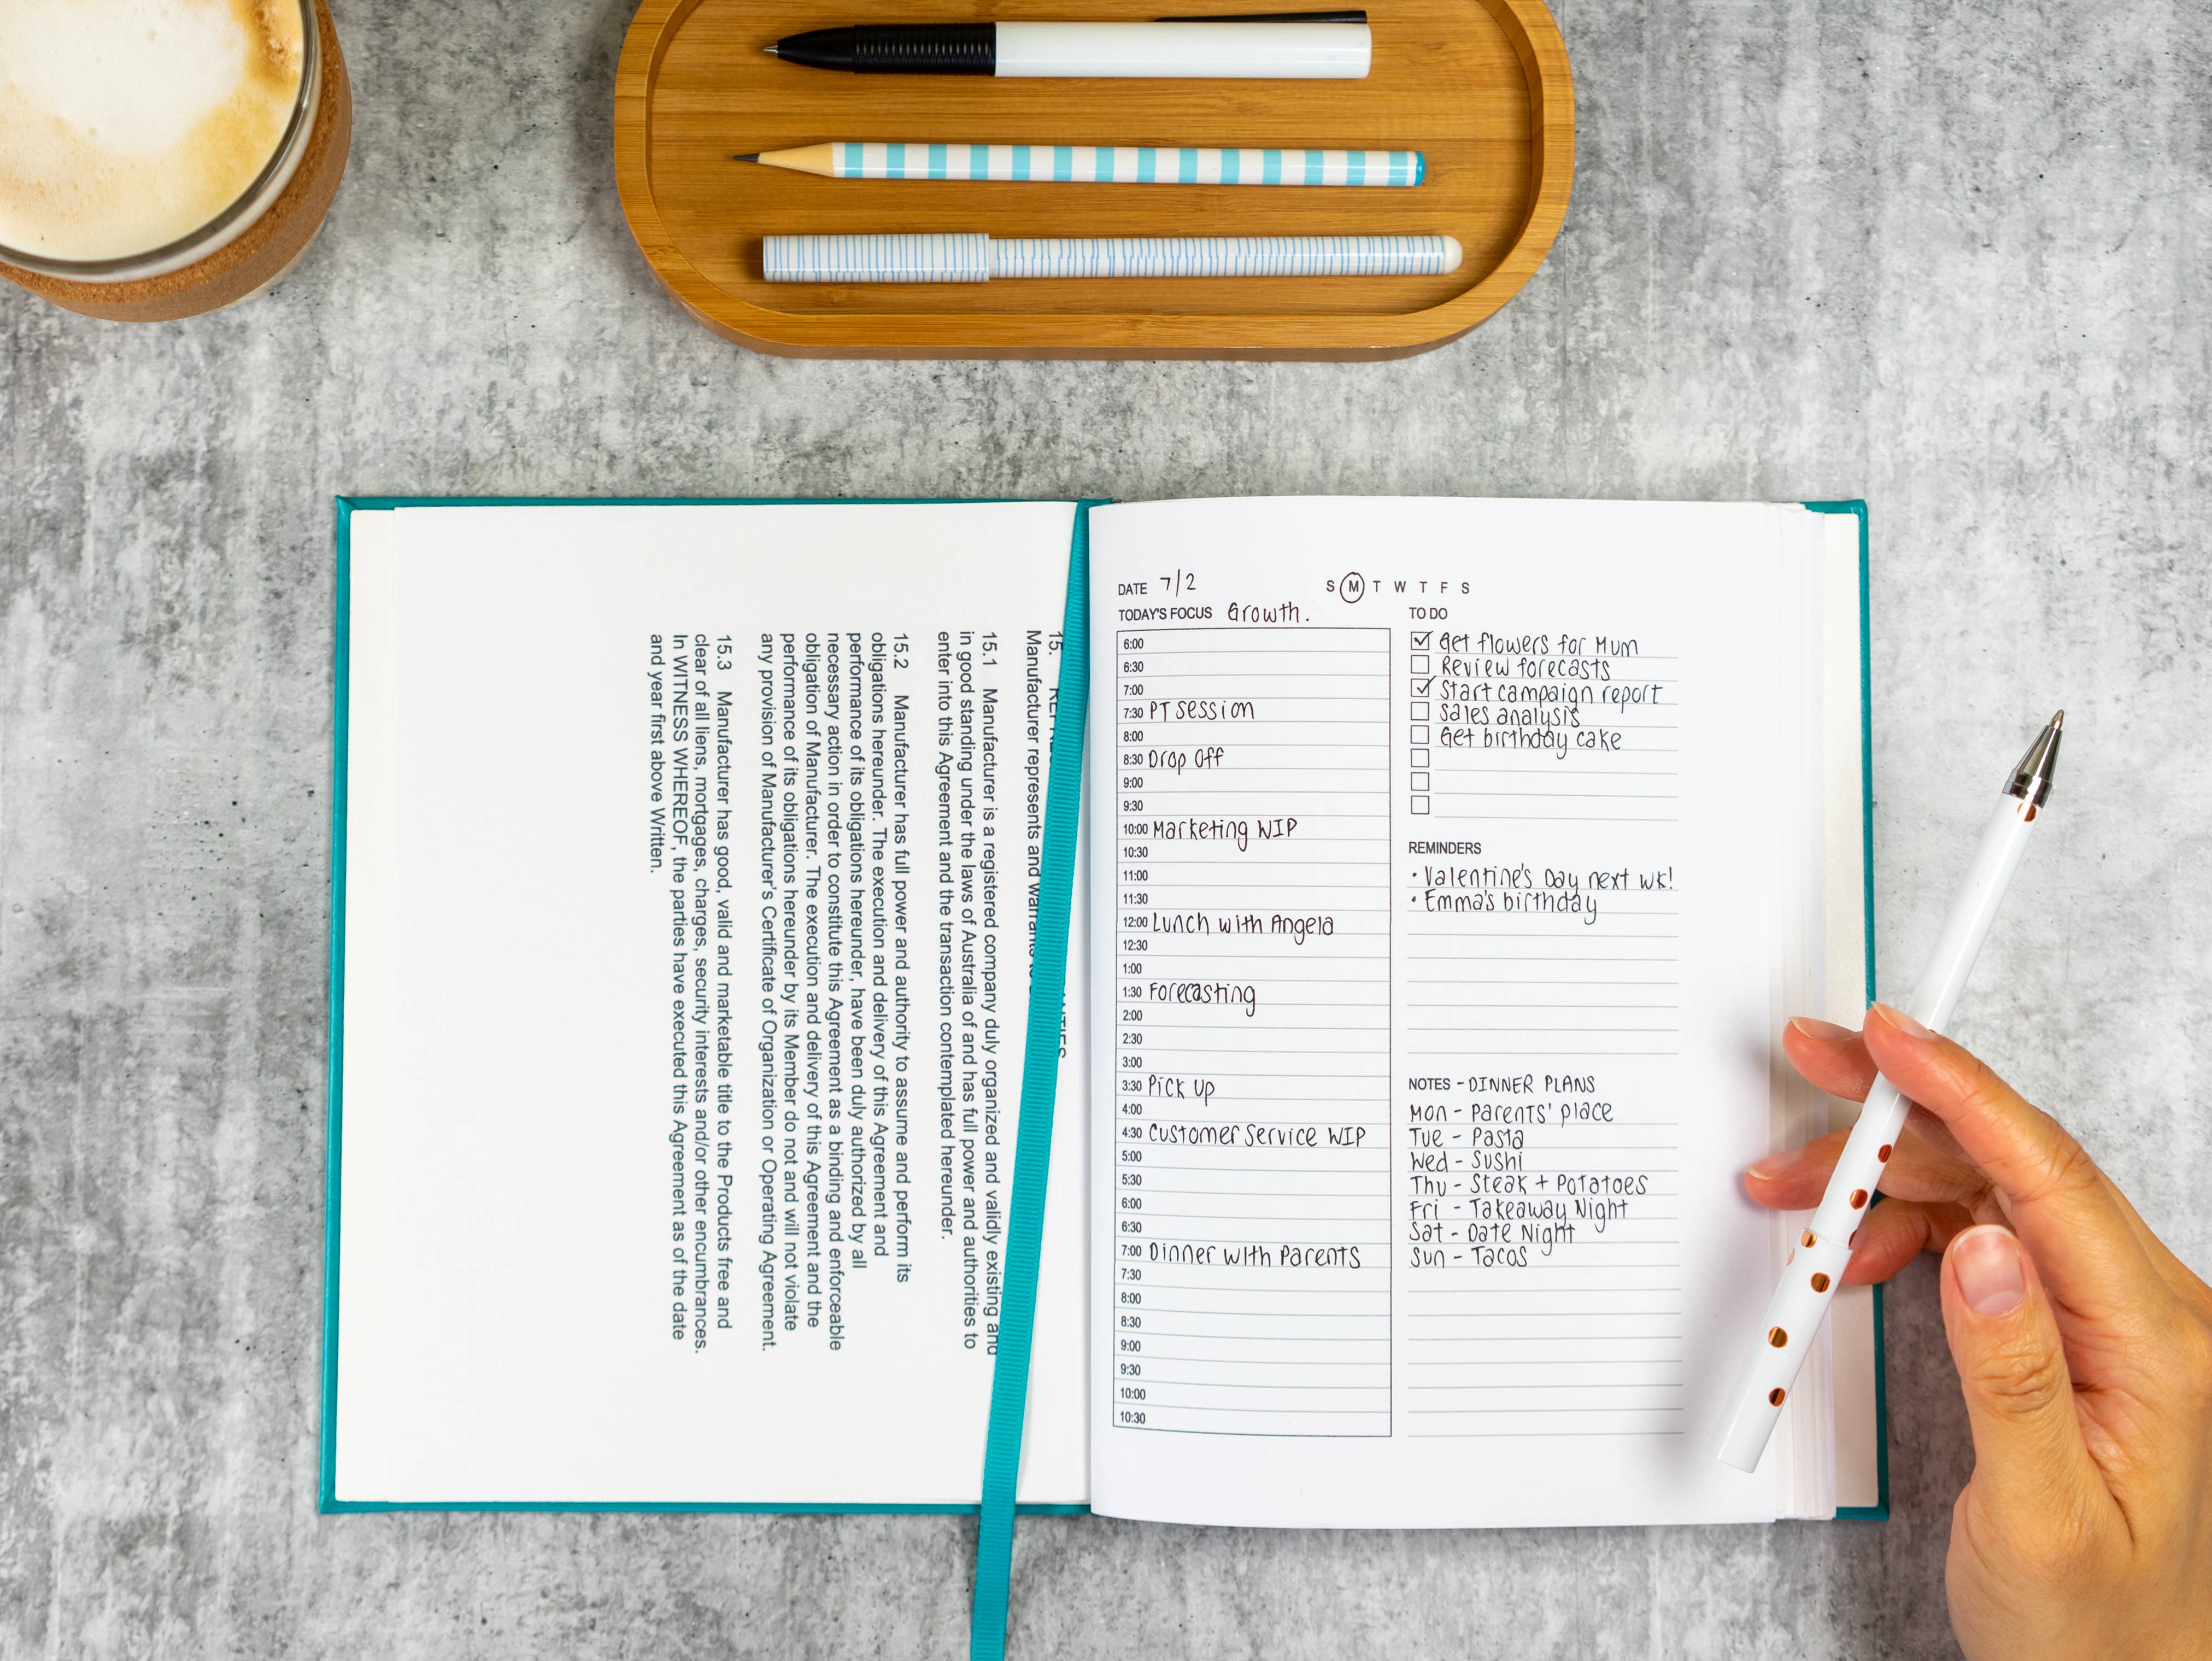 15.
Manufacturer represents and warrants to
15.1 Manufacturer is a registered company duly organized and validly existing and
in good standing under the laws of Australia of and has full power and authorities to
enter into this Agreement and the transaction contemplated hereunder.
15.2 Manufacturer has full power and authority to assume and perform its
obligations hereunder. The execution and delivery of this Agreement and
performance of its obligations hereunder, have been duly authorized by all
necessary action in order to constitute this Agreement as a binding and enforceable
obligation of Manufacturer. The execution and delivery of this Agreement and the
performance of its obligations hereunder by its Member do not and will not violate
any provision of Manufacturer's Certificate of Organization or Operating Agreement.
15.3 Manufacturer has good, valid and marketable title to the Products free and
clear of all liens, mortgages, charges, security interests and/or other encumbrances.
In WITNESS WHEREOF, the parties have executed this Agreement as of the date
and year first above Written.
DATE 7/2
S M T W T F S
TODAY'S FOCUS Growth.
6:00
6:30
7:00
7:30 PT Session
8:00
8:30 Drop Off
9:00
9:30
10:00 Marketing WIP
10:30
11:00
11:30
12:00 Lunch with Angela
12:30
1:00
1:30 Forecasting
2:00
2:30
3:00
3:30 Pick Up
4:00
4:30 Customer Service WIP
5:00
5:30
6:00
6:30
7:00 Dinner with Parents
7:30
8:00
8:30
9:00
9:30
10:00
10:30
TO DO
Get flowers for Mum
Review forecasts
Start campaign report
Sales analysis
Get birthday cake
REMINDERS
• Valentine's Day next wk!
• Emma's birthday
NOTES - DINNER PLANS
Mon - Parents' place
Tue - Pasta
Wed - Sushi
Thu - Steak + Potatoes
Fri - Takeaway Night
Sat - Date Night
Sun - Tacos